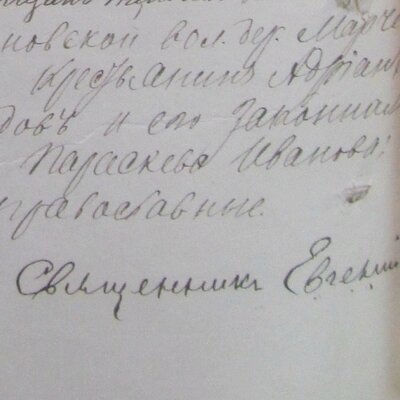 новской вол. дер. Марче
крестьянинъ Адріанъ
довъ и его законная
Параскева Иванова;
православные.
Священникъ Евгеній